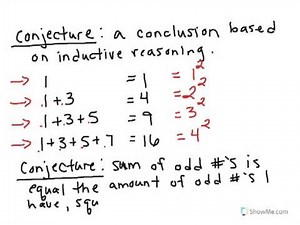 Conjecture: a conclusion based
on inductive reasoning.
→ 1 = 1 = 1²
→ 1+3 = 4 = 2²
→ 1+3+5 = 9 = 3²
→ 1+3+5+7 = 16 = 4²
Conjecture: sum of odd #'s is
equal the amount of odd #'s I
have, squ
ShowMe.com